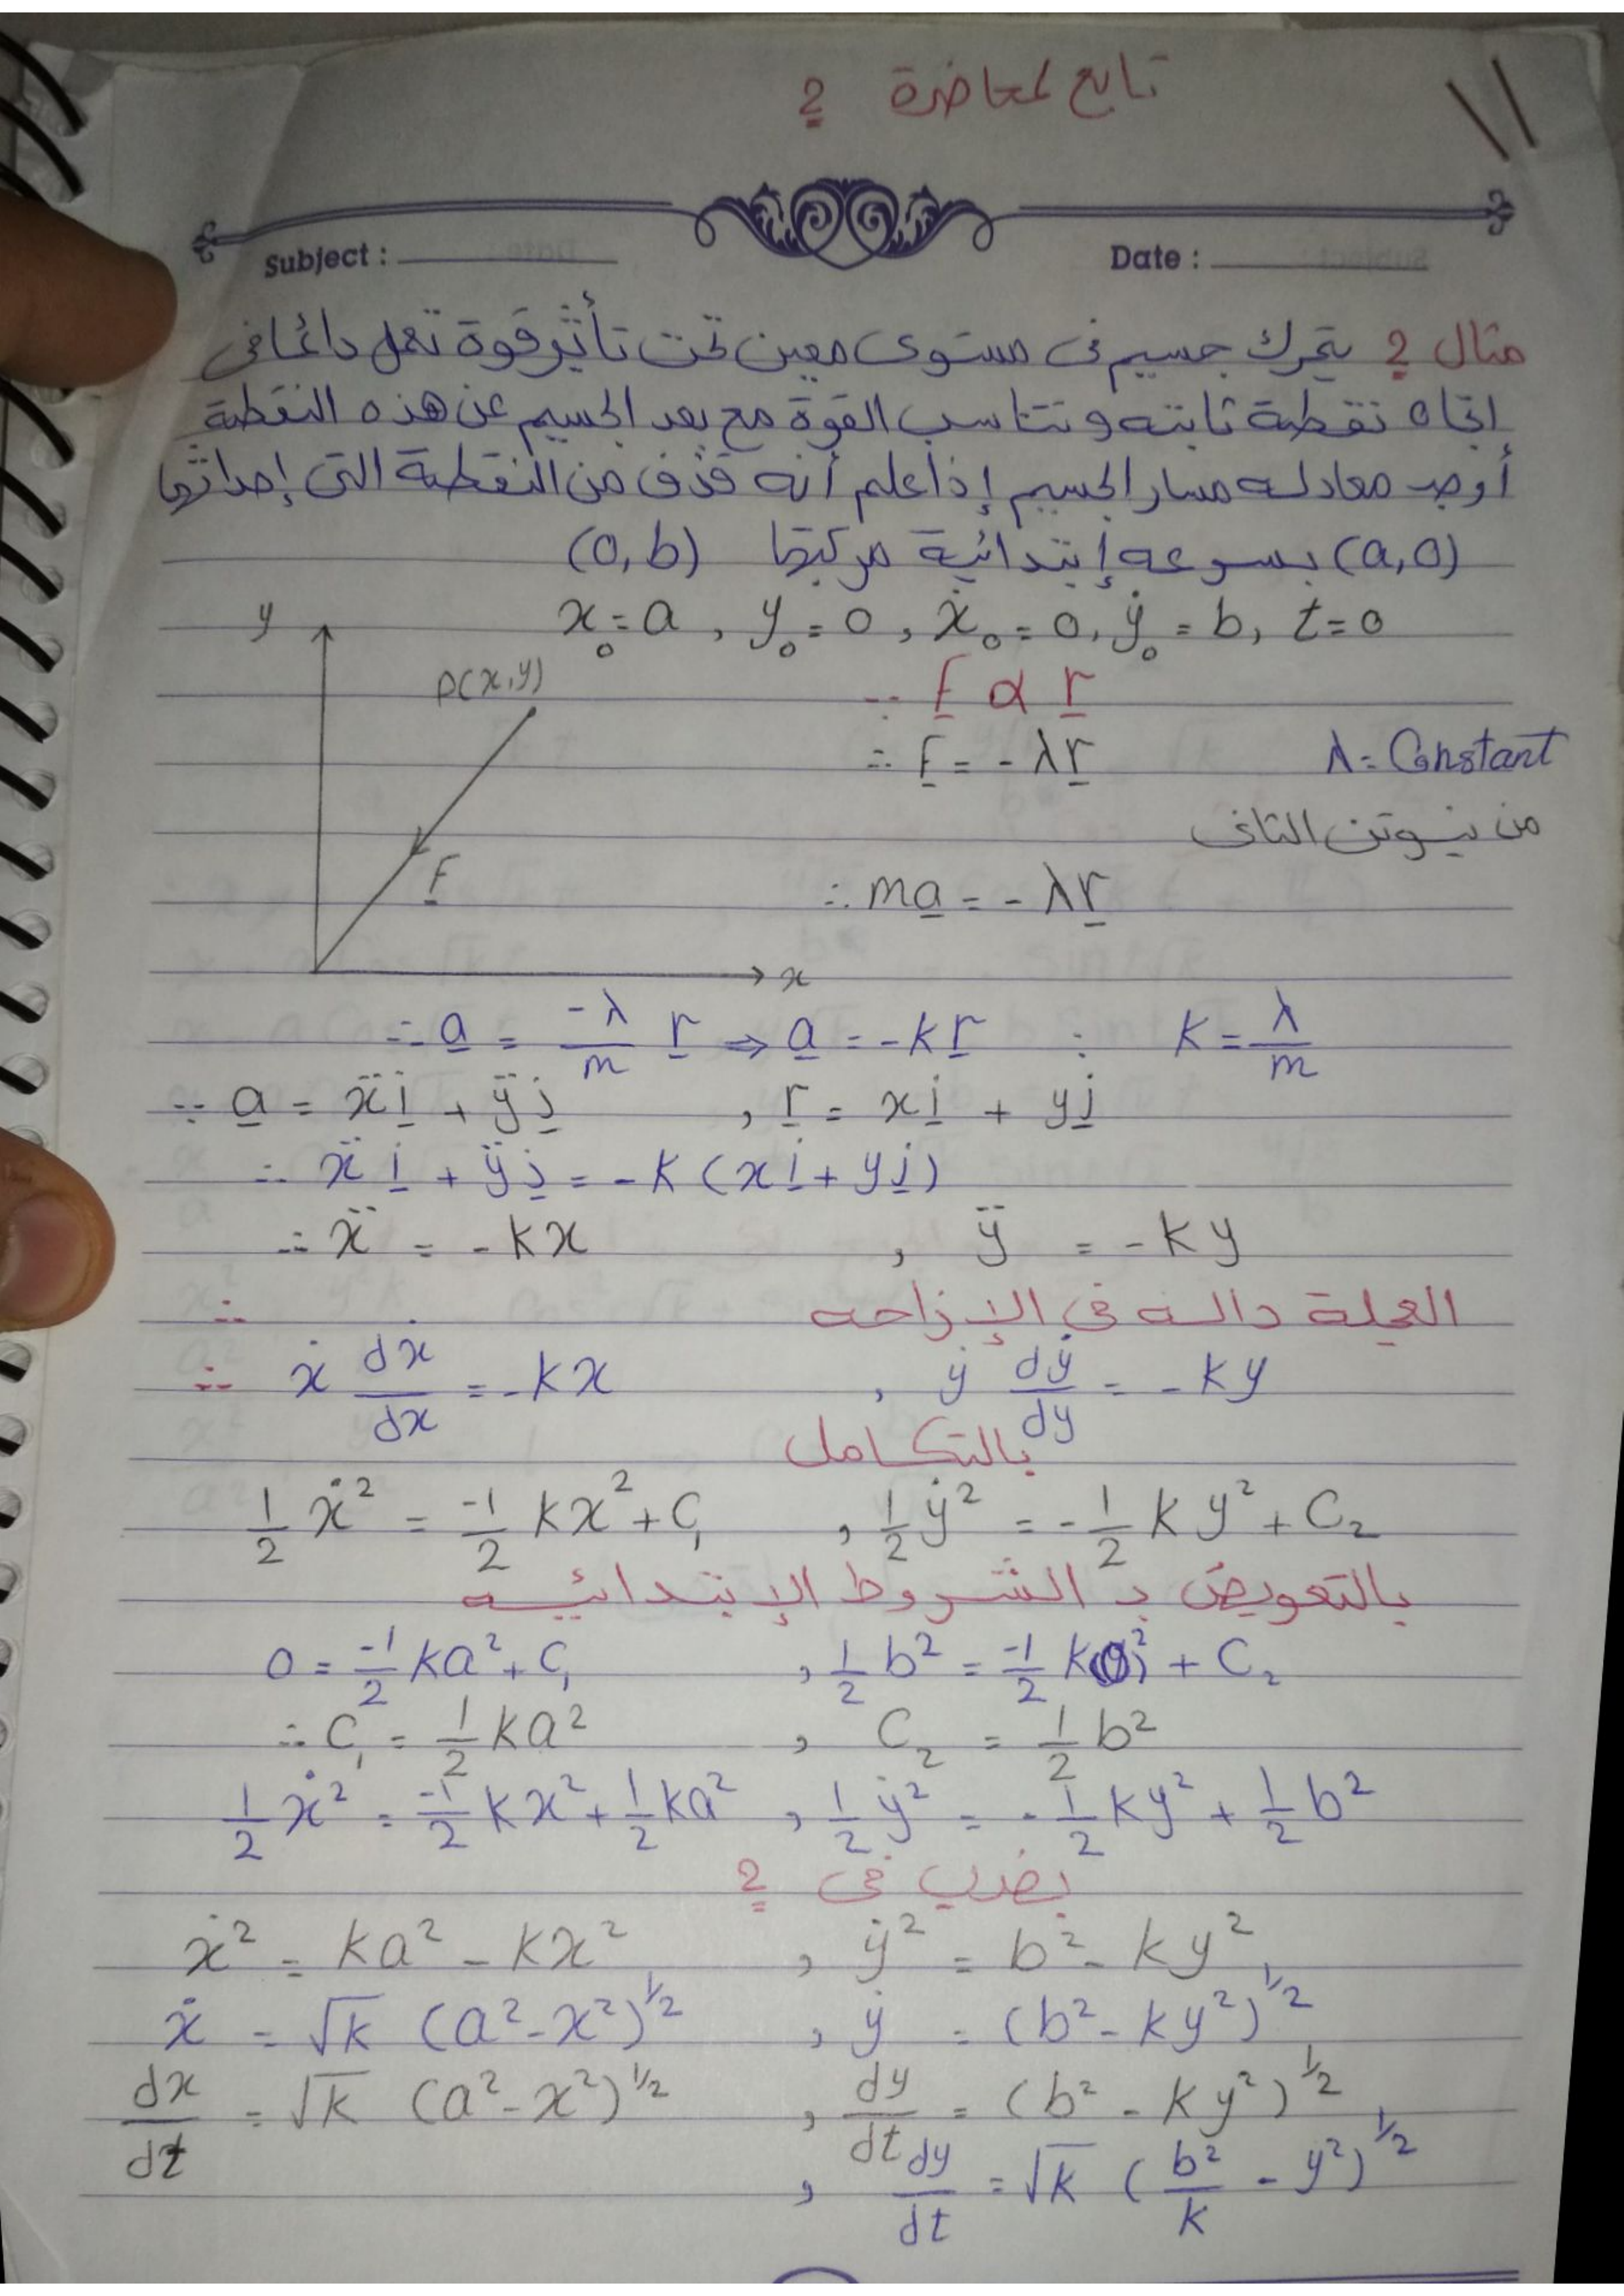 تابع لمحاضرة 2
11
Subject :
Date :
مثال 2 يتحرك جسيم فى مستوى معين تحت تأثير قوة تعمل دائما فى
اتجاه نقطة ثابته وتتناسب القوة مع بعد الجسيم عن هذه النقطة
أوجد معادله مسار الجسيم إذا علم أنه قذف من النقطة التى إحداثيها
(a,0) بسرعه إبتدائية مركبتها (0,b)
x₀ = a , y₀ = 0 , ẋ₀ = 0 , ẏ₀ = b , t = 0
y
P(x,y)
F
x
∵ F α r
∴ F = - λr
λ = Constant
من نيوتن الثانى
∴ ma = - λr
∴ a = -λ/m r ⇒ a = -kr : K = λ/m
∵ a = ẍi + ÿj , r = xi + yj
∴ ẍi + ÿj = -K (xi + yj)
∴ ẍ = -kx , ÿ = -ky
∵ العجلة داله فى الإزاحه
∴ ẋ dẋ/dx = -kx , ẏ dẏ/dy = -ky
بالتكامل
1/2 ẋ² = -1/2 kx² + C₁ , 1/2 ẏ² = -1/2 k y² + C₂
بالتعويض بـ الشروط الإبتدائيه
0 = -1/2 ka² + C₁ , 1/2 b² = -1/2 k(0)² + C₂
∴ C₁ = 1/2 ka² , C₂ = 1/2 b²
1/2 ẋ² = -1/2 kx² + 1/2 ka² , 1/2 ẏ² = -1/2 ky² + 1/2 b²
بضرب فى 2
ẋ² = ka² - kx² , ẏ² = b² - ky²
ẋ = √k (a² - x²)^1/2 , ẏ = (b² - ky²)^1/2
dx/dt = √k (a² - x²)^1/2 , dy/dt = (b² - ky²)^1/2
, dy/dt = √k (b²/k - y²)^1/2